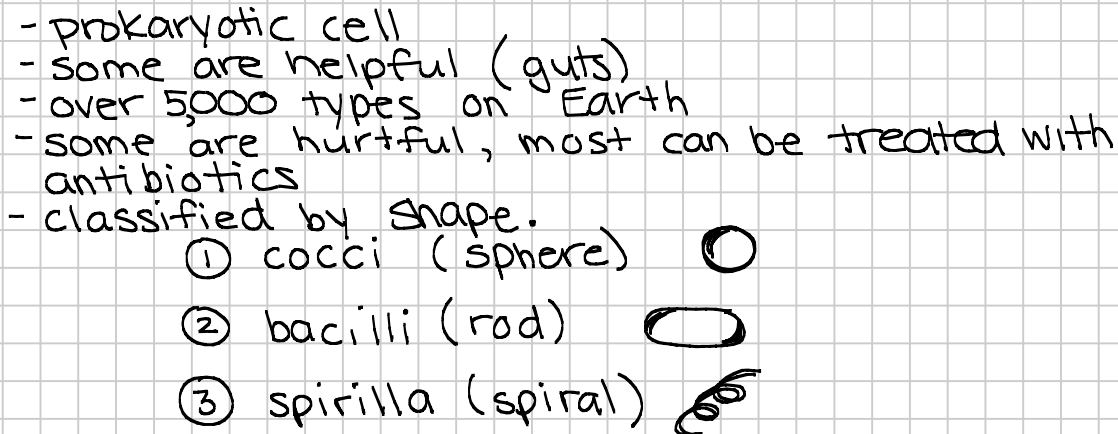 - prokaryotic cell
- some are helpful (guts)
- over 5,000 types on Earth
- some are hurtful, most can be treated with
antibiotics
- classified by shape.
① cocci (sphere)
② bacilli (rod)
③ spirilla (spiral)